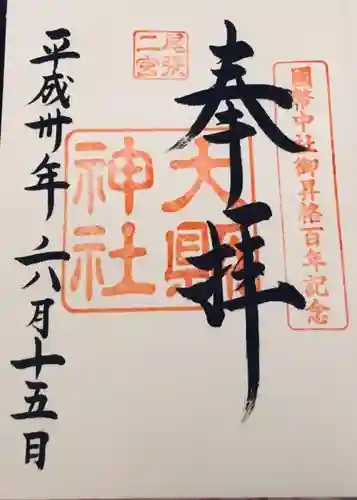 國幣中社御昇格百年記念
奉拝
尾張二宮
大縣神社
平成卅年 六月十五日